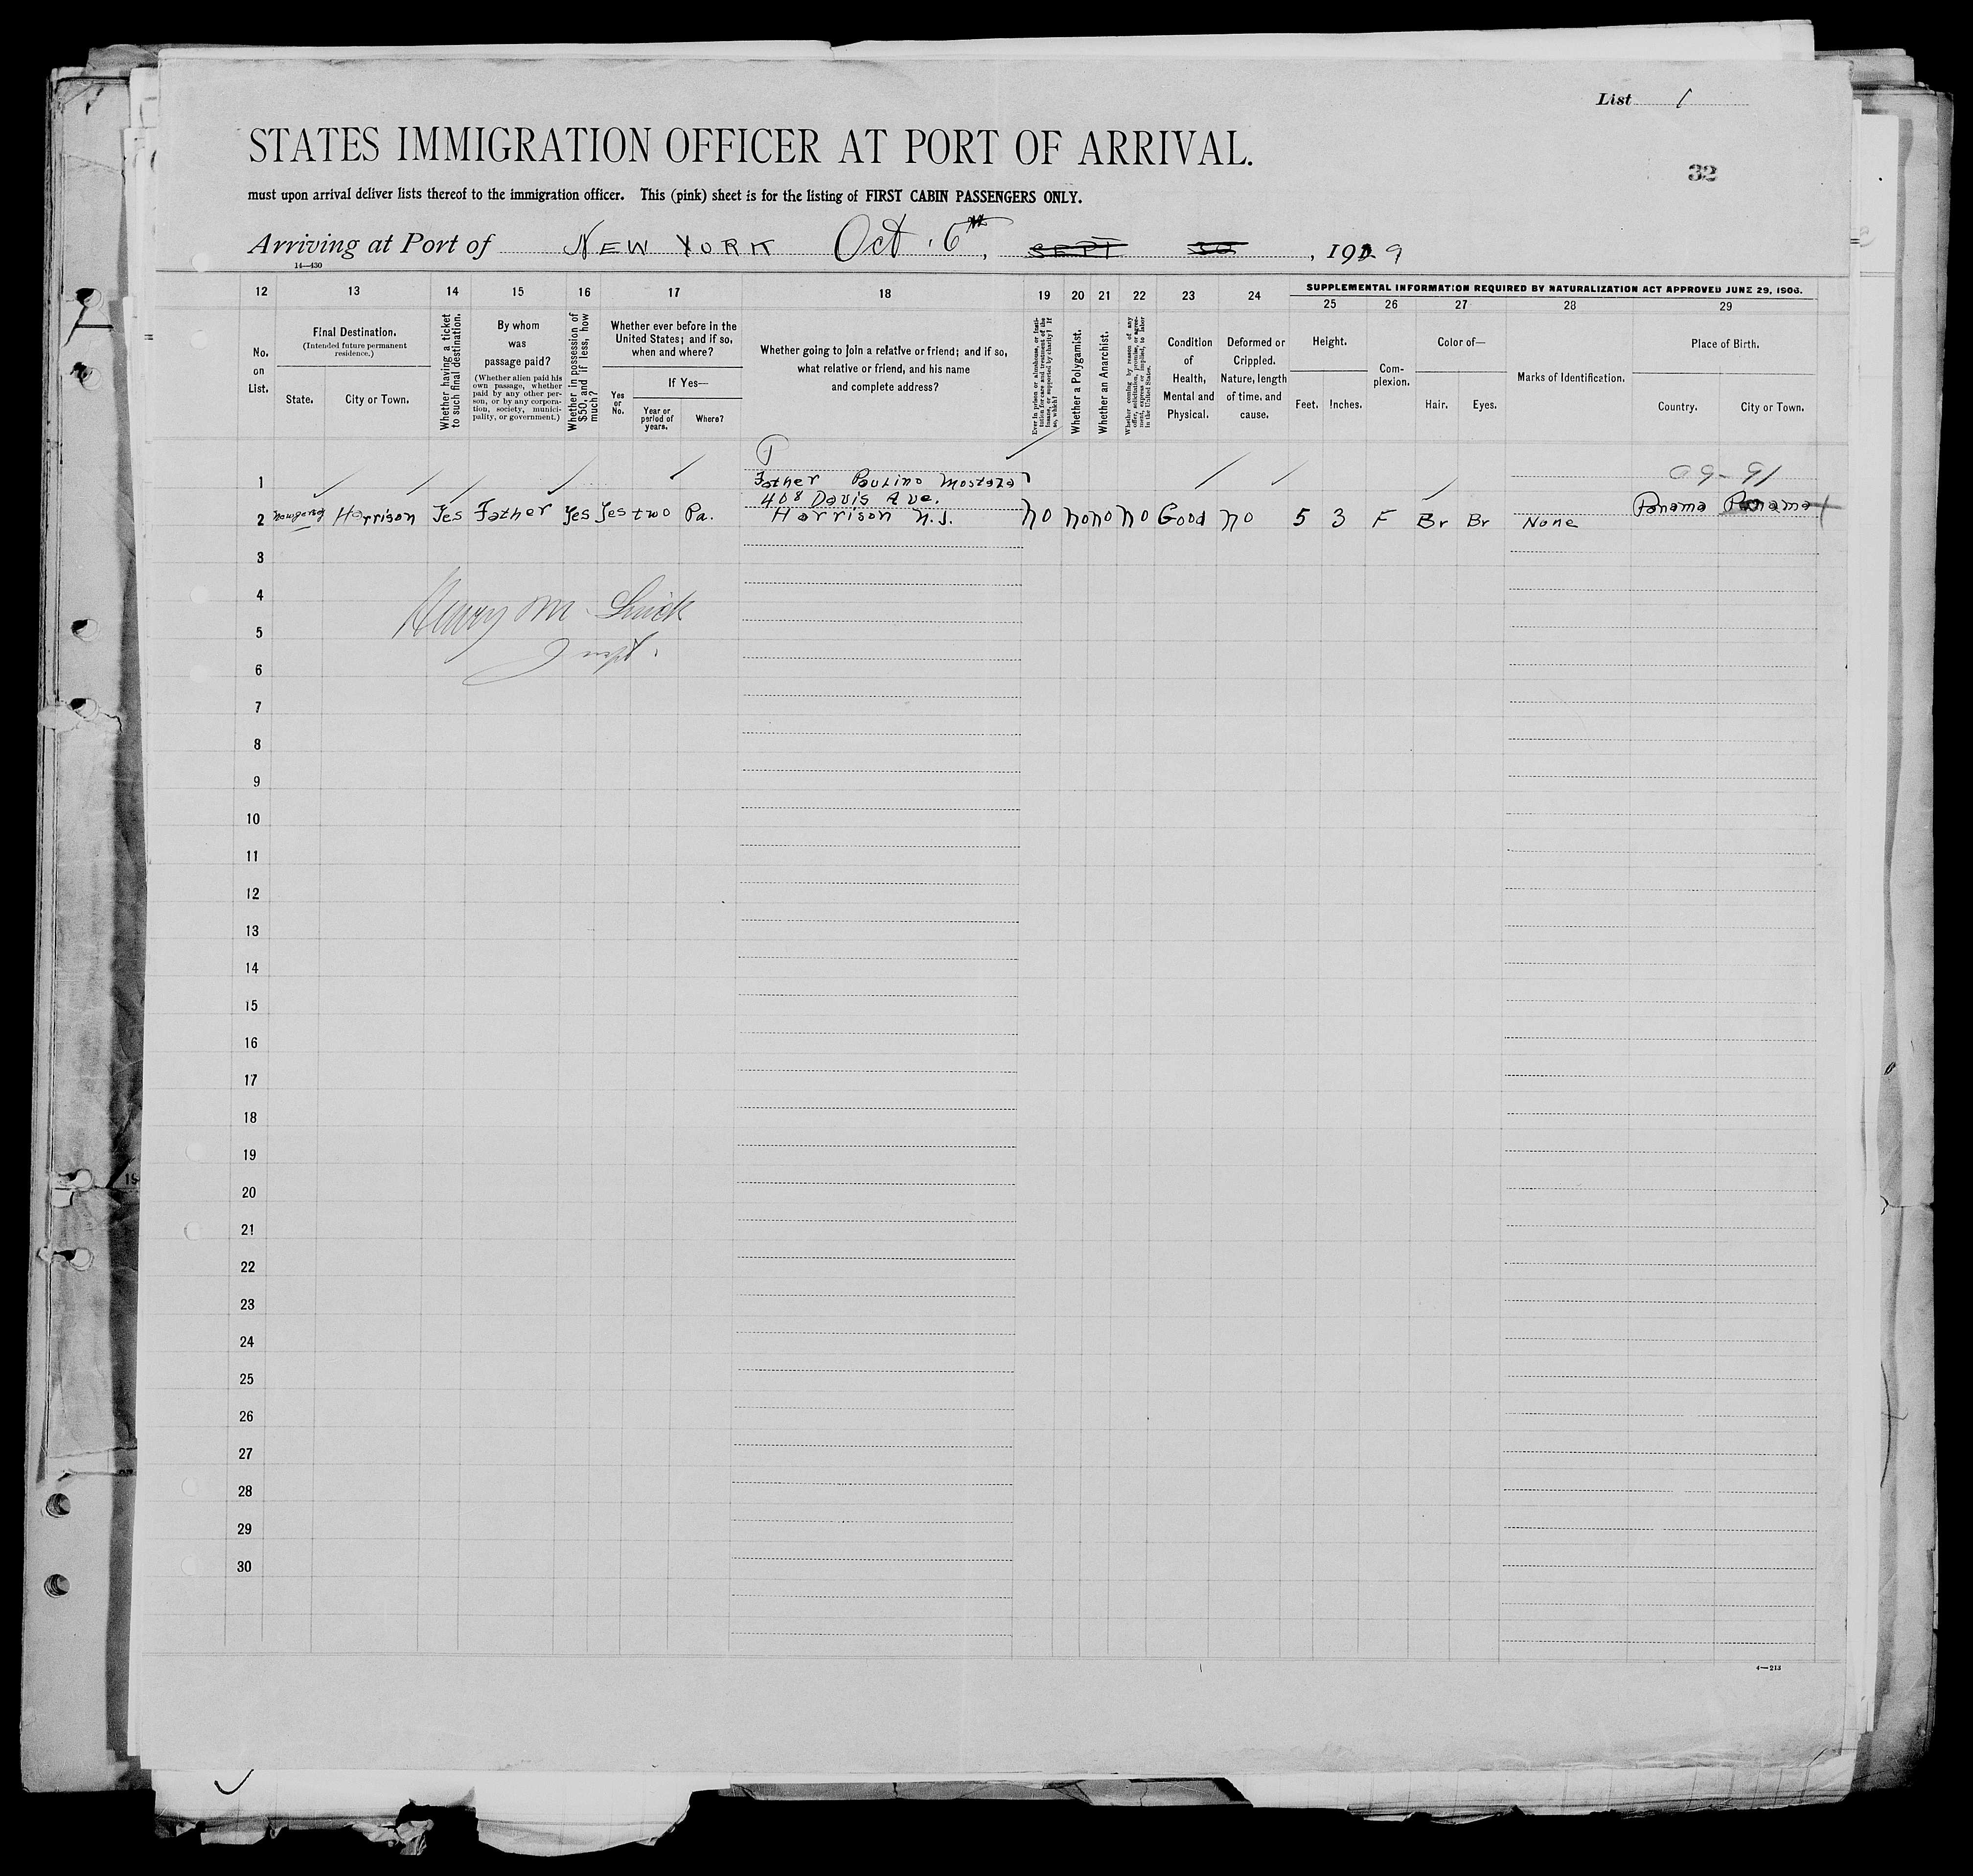 List 1
STATES IMMIGRATION OFFICER AT PORT OF ARRIVAL.
32
must upon arrival deliver lists thereof to the immigration officer. This (pink) sheet is for the listing of FIRST CABIN PASSENGERS ONLY.
Arriving at Port of NEW YORK Oct. 6th, SEPT 30, 1919
14—430
12 13 14 15 16 17 18 19 20 21 22 23 24
SUPPLEMENTAL INFORMATION REQUIRED BY NATURALIZATION ACT APPROVED JUNE 29, 1906.
25 26 27 28 29
No. on List.
Final Destination.
(Intended future permanent residence.)
State. City or Town.
Whether having a ticket to such final destination.
By whom was passage paid?
(Whether alien paid his own passage, whether paid by any other person, or by any corporation, society, municipality, or government.)
Whether in possession of $50, and if less, how much?
Whether ever before in the United States; and if so, when and where?
Yes or No.
If Yes—
Year or period of years. Where?
Whether going to join a relative or friend; and if so, what relative or friend, and his name and complete address?
Ever in prison or almshouse, or institution for care and treatment of the insane, or supported by charity? If so, which?
Whether a Polygamist.
Whether an Anarchist.
Whether coming by reason of any offer, solicitation, promise, or agreement, express or implied, to labor in the United States.
Condition of Health, Mental and Physical.
Deformed or Crippled. Nature, length of time, and cause.
Height.
Feet. Inches.
Complexion.
Color of—
Hair. Eyes.
Marks of Identification.
Place of Birth.
Country. City or Town.
09-91
1 Father Paulino Mostaza
408 Davis Ave.
2 Harrison Yes Father Yes Yes two Pa. Harrison N.J. No No No No Good No 5 3 F Br Br None Panama Panama
3
4
5
6
7
8
9
10
11
12
13
14
15
16
17
18
19
20
21
22
23
24
25
26
27
28
29
30
4—213